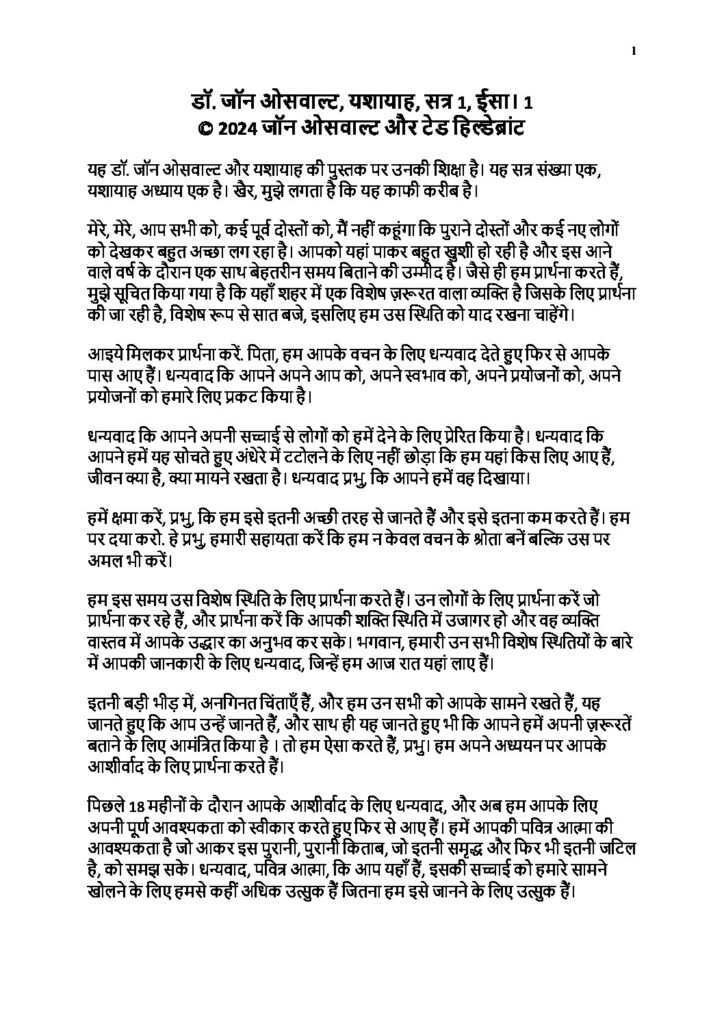 1
डॉ. जॉन ओसवाल्ट, यशायाह, सत्र 1, ईसा। 1
© 2024 जॉन ओसवाल्ट और टेड हिल्डेब्रांट
यह डॉ. जॉन ओसवाल्ट और यशायाह की पुस्तक पर उनकी शिक्षा है। यह सत्र संख्या एक,
यशायाह अध्याय एक है। खैर, मुझे लगता है कि यह काफी करीब है।
मेरे, मेरे, आप सभी को, कई पूर्व दोस्तों को, मैं नहीं कहूंगा कि पुराने दोस्तों और कई नए लोगों
को देखकर बहुत अच्छा लग रहा है। आपको यहां पाकर बहुत खुशी हो रही है और इस आने
वाले वर्ष के दौरान एक साथ बेहतरीन समय बिताने की उम्मीद है। जैसे ही हम प्रार्थना करते हैं,
मुझे सूचित किया गया है कि यहाँ शहर में एक विशेष ज़रूरत वाला व्यक्ति है जिसके लिए प्रार्थना
की जा रही है, विशेष रूप से सात बजे, इसलिए हम उस स्थिति को याद रखना चाहेंगे।
आइये मिलकर प्रार्थना करें. पिता, हम आपके वचन के लिए धन्यवाद देते हुए फिर से आपके
पास आए हैं। धन्यवाद कि आपने अपने आप को, अपने स्वभाव को, अपने प्रयोजनों को, अपने
प्रयोजनों को हमारे लिए प्रकट किया है।
धन्यवाद कि आपने अपनी सच्चाई से लोगों को हमें देने के लिए प्रेरित किया है। धन्यवाद कि
आपने हमें यह सोचते हुए अंधेरे में टटोलने के लिए नहीं छोड़ा कि हम यहां किस लिए आए हैं,
जीवन क्या है, क्या मायने रखता है। धन्यवाद प्रभु, कि आपने हमें वह दिखाया।
हमें क्षमा करें, प्रभु, कि हम इसे इतनी अच्छी तरह से जानते हैं और इसे इतना कम करते हैं। हम
पर दया करो. हे प्रभु, हमारी सहायता करें कि हम न केवल वचन के श्रोता बनें बल्कि उस पर
अमल भी करें।
हम इस समय उस विशेष स्थिति के लिए प्रार्थना करते हैं। उन लोगों के लिए प्रार्थना करें जो
प्रार्थना कर रहे हैं, और प्रार्थना करें कि आपकी शक्ति स्थिति में उजागर हो और वह व्यक्ति
वास्तव में आपके उद्धार का अनुभव कर सके। भगवान, हमारी उन सभी विशेष स्थितियों के बारे
में आपकी जानकारी के लिए धन्यवाद, जिन्हें हम आज रात यहां लाए हैं।
इतनी बड़ी भीड़ में, अनगिनत चिंताएँ हैं, और हम उन सभी को आपके सामने रखते हैं, यह
जानते हुए कि आप उन्हें जानते हैं, और साथ ही यह जानते हुए भी कि आपने हमें अपनी ज़रूरतें
बताने के लिए आमंत्रित किया है । तो हम ऐसा करते हैं, प्रभु। हम अपने अध्ययन पर आपके
आशीर्वाद के लिए प्रार्थना करते हैं।
पिछले 18 महीनों के दौरान आपके आशीर्वाद के लिए धन्यवाद, और अब हम आपके लिए
अपनी पूर्ण आवश्यकता को स्वीकार करते हुए फिर से आए हैं। हमें आपकी पवित्र आत्मा की
आवश्यकता है जो आकर इस पुरानी, पुरानी किताब, जो इतनी समृद्ध और फिर भी इतनी जटिल
है, को समझ सके। धन्यवाद, पवित्र आत्मा, कि आप यहाँ हैं, इसकी सच्चाई को हमारे सामने
खोलने के लिए हमसे कहीं अधिक उत्सुक हैं जितना हम इसे जानने के लिए उत्सुक हैं।